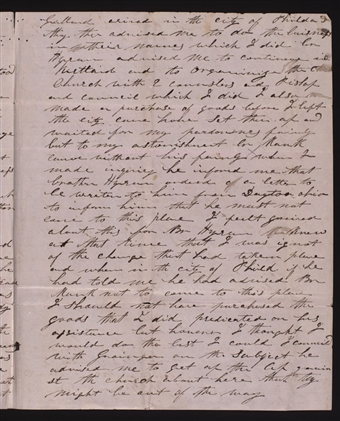 arived in the city of Philda &
they then advised me to do the buisness
in their names which I did Br
Hyrum advised me to continue in
and to Organise the
Church with 2 Councilors and Bishop
& council which I did I also
made a purchase of goods before I left
the city came home Set them up and
waited for my pardoners family
but to my astonishment Br
came without his family when I
made inquire he informed me that
Brother Hyrum ordered of a letter to
be writen to him from Dayton ohio
to inform him that he must not
come to this place I felt greived
about this for Br Hyrum knew
at that time that I was ignot
of the change that had taken place
and when in the city of Phild if he
had told me he had advised Bro
not to come to this place
I Should not have purchased the
goods that I did predicated on his
assistance but however I thought I
would do the best I could I counsil
with on the Subject he
advised me to get up the
the church about here that they
might be out of the way